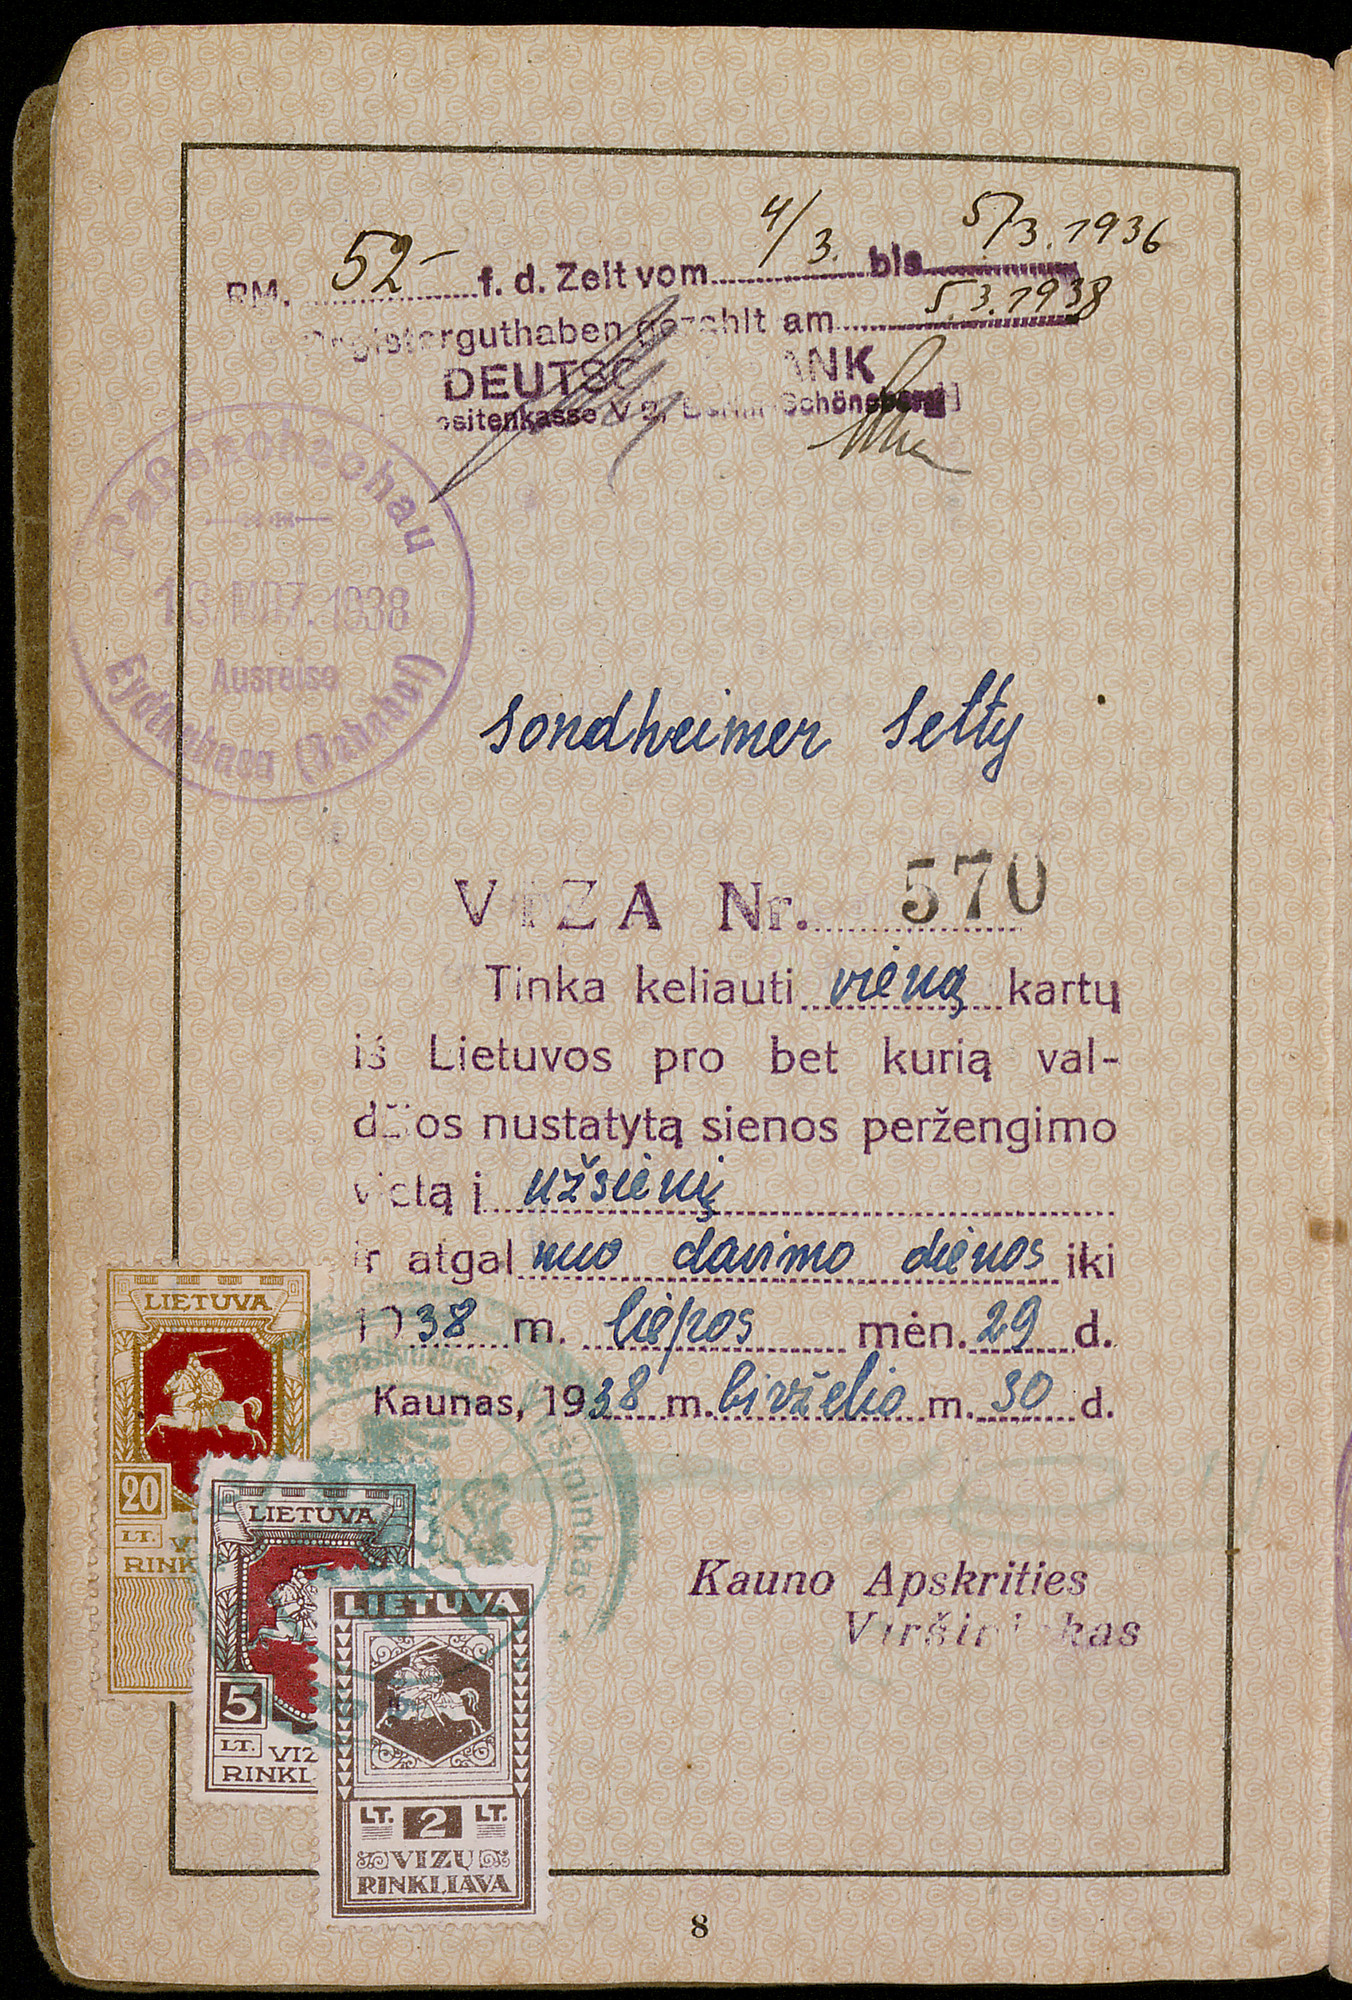 RM. 52- f. d. Zeit vom 4/3. bis 5/3.1936
Registerguthaben gezahlt am 5.3.1938
DEUTSC ANK
ositenkasse V 2, Berlin-Schöneberg
Paßnachschau
MRZ. 1938
Ausreise
Eydtkuhnen (Bahnhof)
Sondheimer Setty
VIZA Nr. 570
Tinka keliauti vieną kartų
iš Lietuvos pro bet kurią val-
džios nustatytą sienos peržengimo
vietą į užsienį
ir atgal nuo davimo dienos iki
1938 m. liepos mėn. 29 d.
Kaunas, 1938 m. birželio m. 30 d.
Kauno Apskrities
Viršininkas
Apskrities Viršininkas
LIETUVA
20
LT. V
RINK
LIETUVA
5
LT. VIZ
RINKL
LIETUVA
LT. 2 LT.
VIZŲ
RINKLIAVA
8